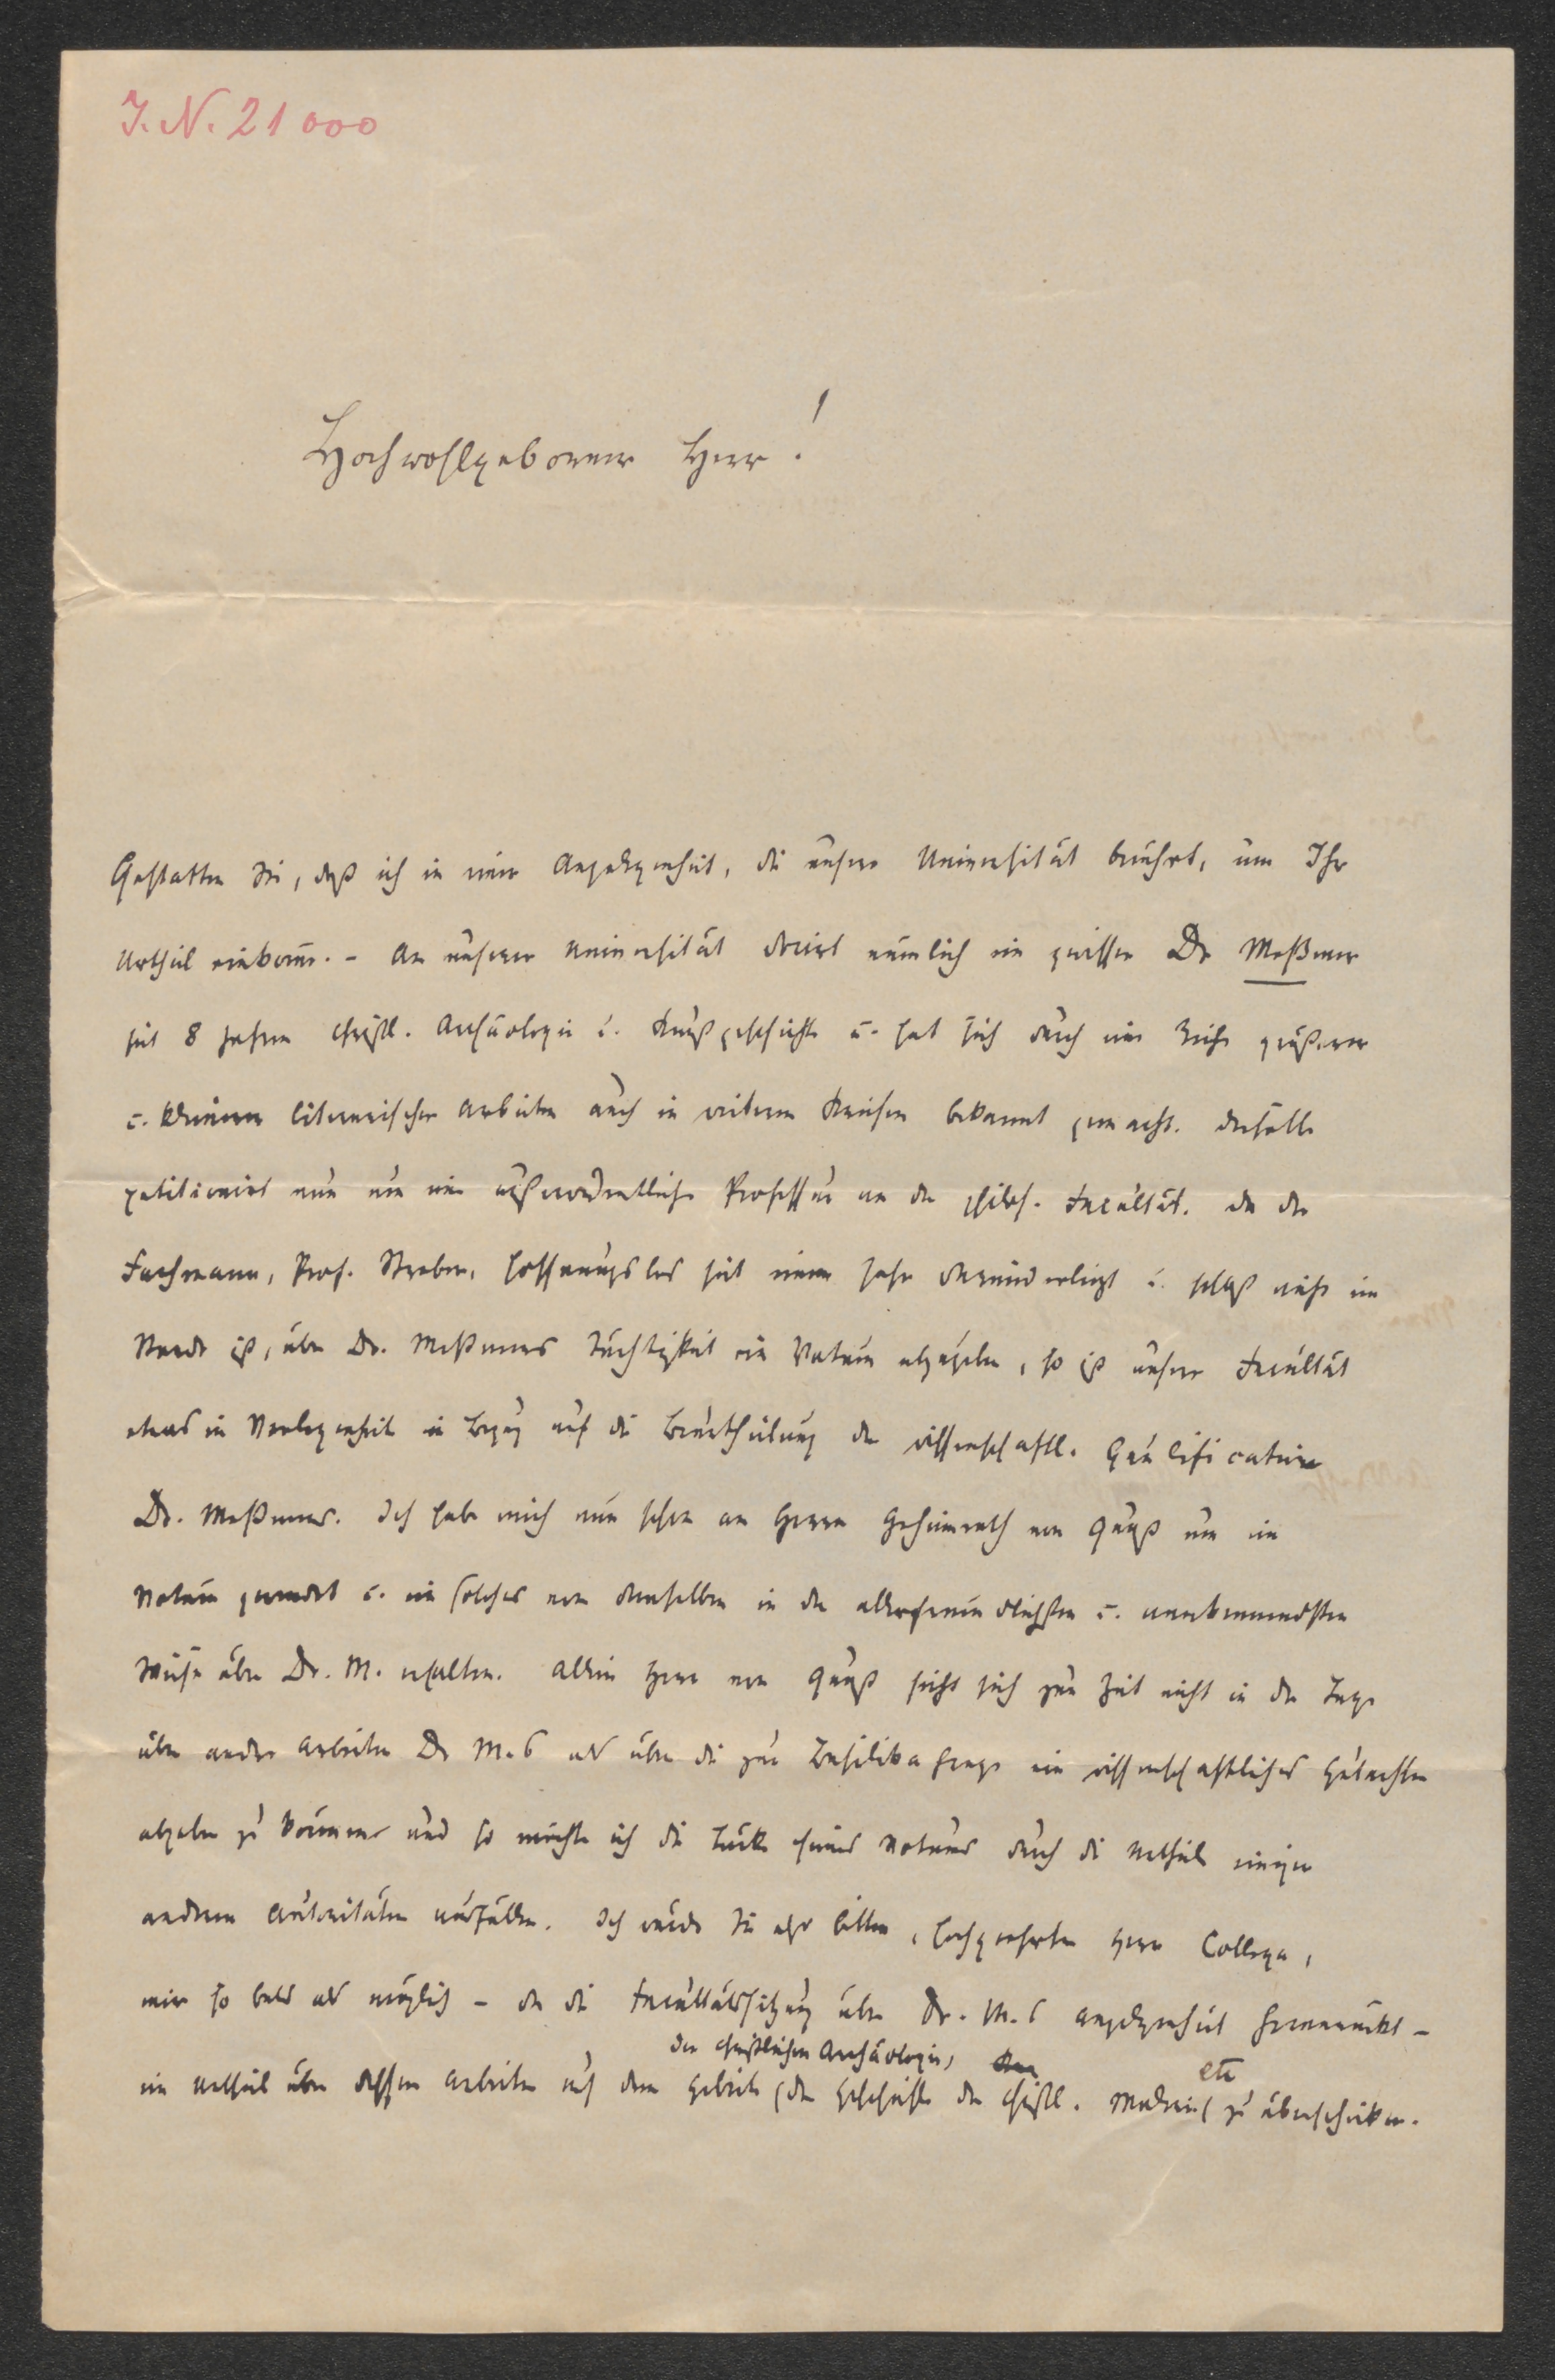 I. N. 21000
Hochwohlgeborner Herr!
Gestatten Sie, daß ich in einer Angelegenheit, die unsere Universität berührt, um Ihr
Urtheil einkomme. – An unserer Universität docirt nämlich ein gewisser Dr Meßmer
seit 8 Jahren christl. Archäologie u. Kunstgeschichte u. hat sich durch eine Reihe größerer
u. kleinerer literarischer Arbeiten auch in weiteren Kreisen bekannt gemacht. Derselbe
petitionirt nun um eine außerordentliche Professur an der philos. Facultät. Da der
Fachmann, Prof. Streber, hoffnungslos seit einem Jahr darniederliegt u. selbst nicht im
Stande ist, über Dr. Meßmers Tüchtigkeit ein Votum abzugeben, so ist unsere Facultät
etwas in Verlegenheit in Bezug auf die Beurtheilung der wissenschaftl. Qualification
Dr. Meßmers. Ich habe mich nun schon an Herrn Geheimrath von Quast um ein
Votum gewendet u. ein solches von demselben in der allerfreundlichsten u. anerkennendsten
Weise über Dr. M. erhalten. Allein Herr von Quast sieht sich zur Zeit nicht in der Lage
über andere Arbeiten Dr M.s als über die zur Basilikafrage ein wissenschaftliches Gutachten
abgeben zu können und so möchte ich die Lücke seines Votums durch die Urtheile einiger
anderen Autoritäten ausfüllen. Ich würde Sie also bitten, hochgeehrter Herr Collega,
mir so bald als möglich – da die Facultätssitzung über Dr. M.s Angelegenheit heranrückt –
der christlichen Archäologie,
ein Urtheil über dessen Arbeiten auf dem Gebiete (der Geschichte der christl. Malerei etc) zu überschicken.